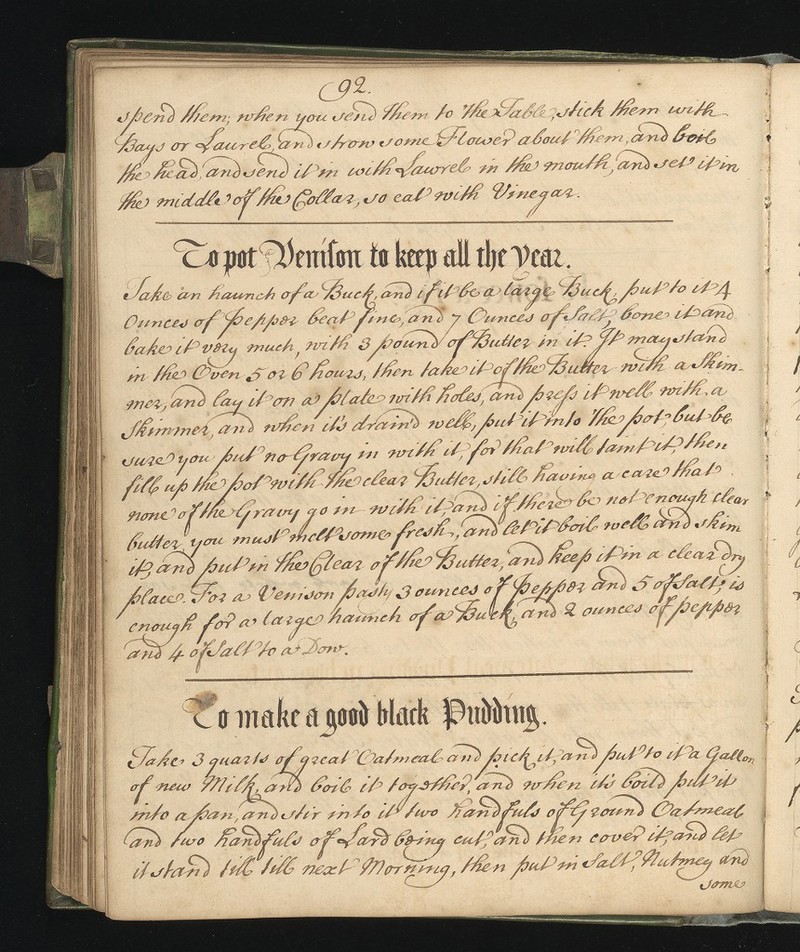 92.
spend them; when you send them to the Table, stick them with
Bays or Laurel, and strow some Flower about them, and boil
the head, and send it in with Lawrel in the mouth, and set it in
the middle of the Collar, so eat with Vinegar.
To pot Venison to keep all the year.
Take an haunch of a Buck, and if it be a large Buck, put to it 4
Ounces of Pepper beat fine, and 7 Ounces of Salt, bone it and
bake it very much, with 3 pound of Butter in it. It may stand
in the Oven 5 or 6 hours, then take it of the Butter with a Skim-
mer, and lay it on a plate with holes, and press it well with a
Skimmer, and when it's drain'd well, put it into the pot, but be
sure you put no Gravy in with it, for that will taint it, then
fill up the pot with the clear Butter, still having a care that
none of the Gravy go in with it, and if there be not enough clear
butter, you must melt some fresh, and let it boil well and skim
it, and put in the Clear of the Butter, and keep it in a clear dry
place. For a Venison pasty 3 ounces of Pepper and 5 of Salt, is
enough for a large haunch of a Buck, and 2 ounces of pepper
and 4 of Salt to a Dow.
To make a good black Pudding.
Take 3 quarts of great Oatmeal and pick it, and put to it a Gallon
of new Milk, and boil it together, and when it's boild put it
into a pan, and stir into it two handfuls of Ground Oatmeal
and two handfuls of Lard being cut, and then cover it, and let
it stand till till next Morning, then put in Salt, Nutmeg and
some